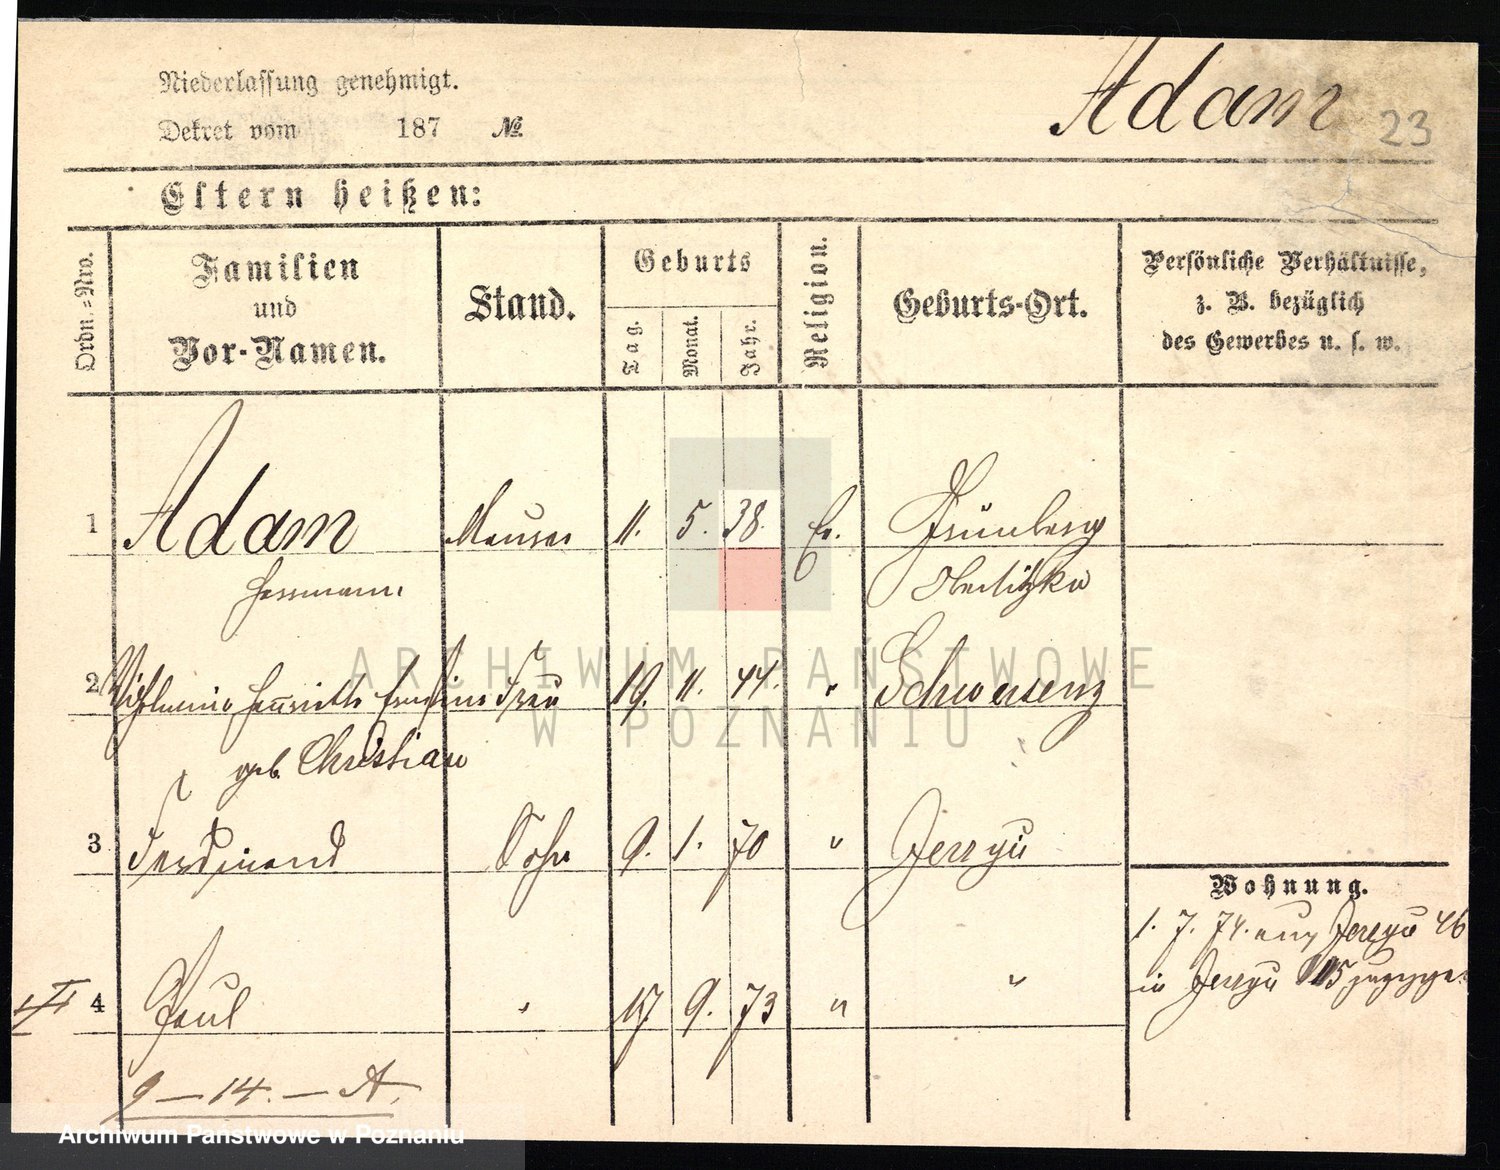 Niederlassung genehmigt.
Adam 23
Dekret vom 187 №
Eltern heißen:
Ordn.=Nro.
Familien
und
Vor-Namen.
Stand.
Geburts
Tag.
Monat.
Jahr.
Religion.
Geburts-Ort.
Persönliche Verhältnisse,
z. B. bezüglich
des Gewerbes u. s. w.
1 Adam Maurer 11. 5. 38. Ev. Grünberg
Herrmann Obersitzko
2 Wilhelmine Henriette Ernestine Frau 19. 11. 44. " Schwersenz
geb. Christian
3 Ferdinand Sohn 9. 1. 70 " Jerzyce
Wohnung.
1. 7. 74. aus Jerzyce 46
in Jerzyce 115
4 Paul " 17 9. 73 " "
9 — 14. — A.
ARCHIWUM PAŃSTWOWE
W POZNANIU
Archiwum Państwowe w Poznaniu